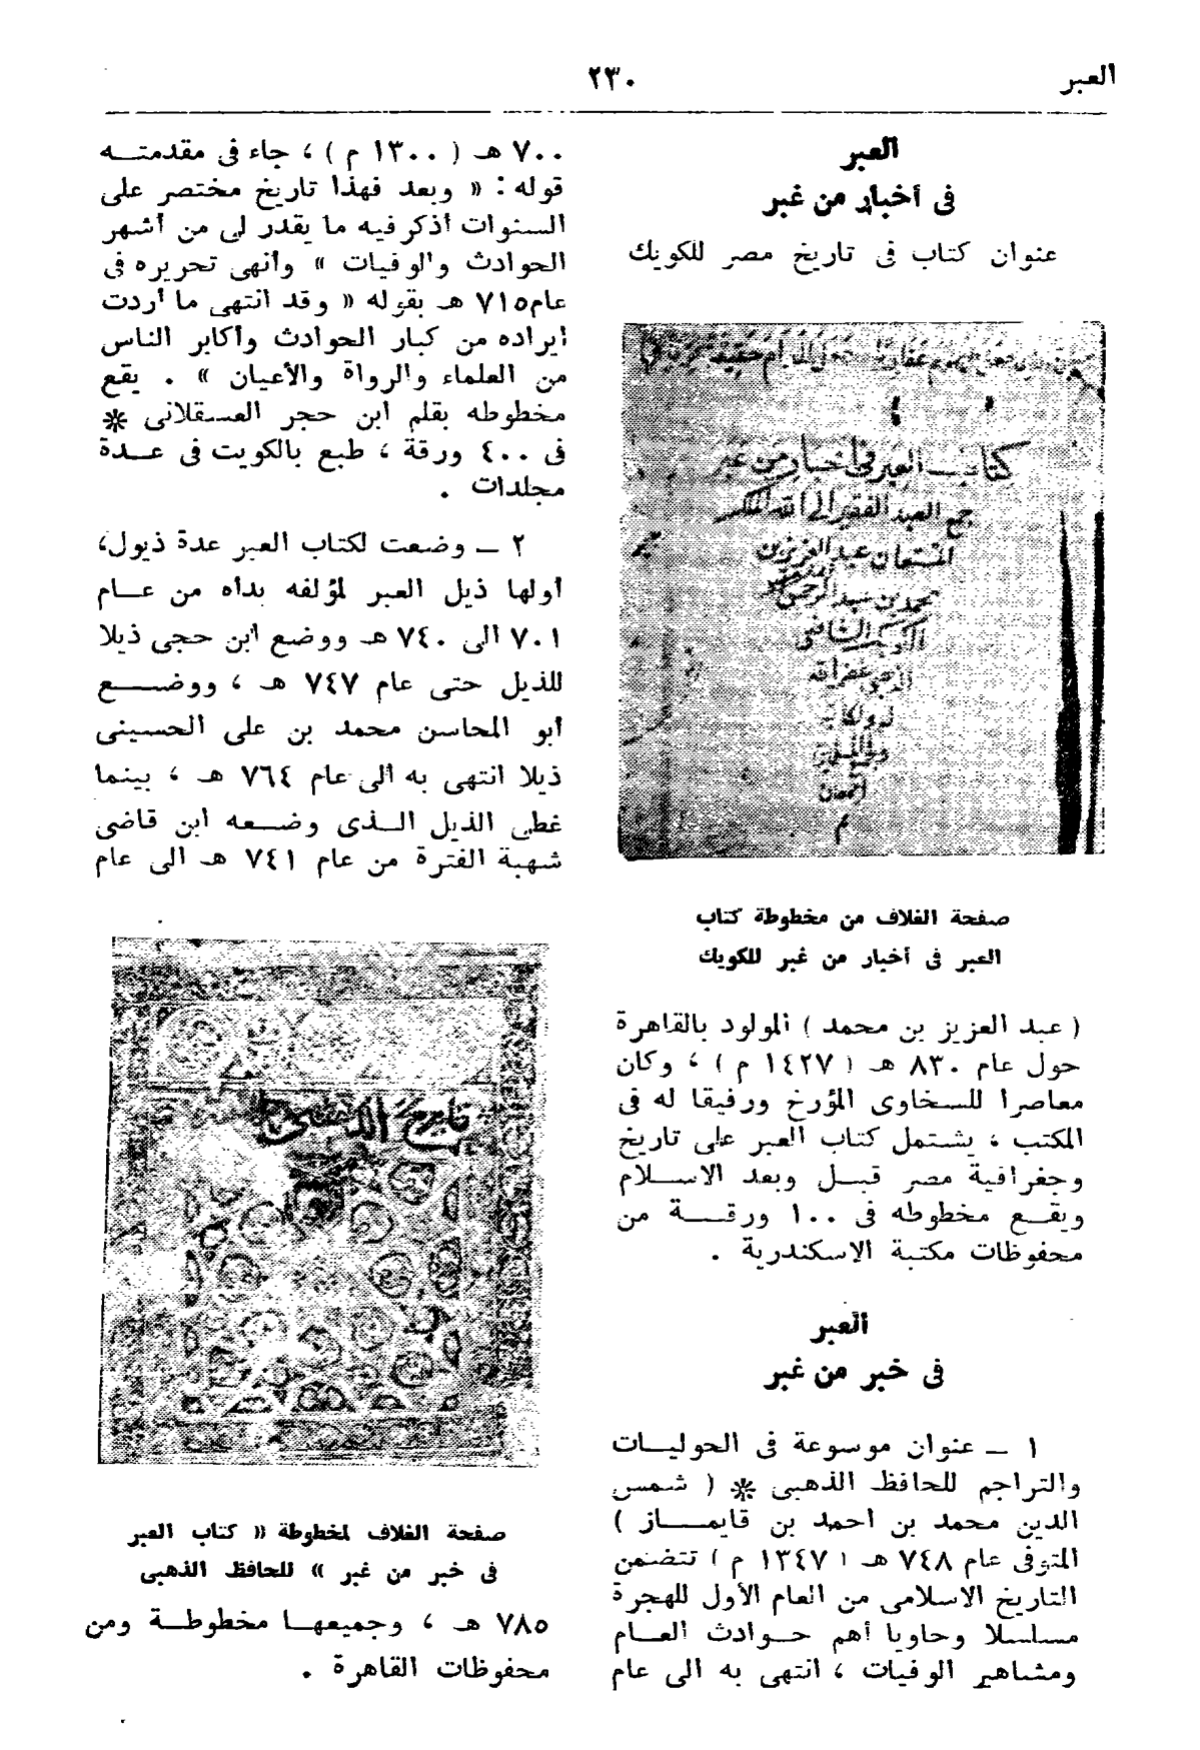 العبر
٢٣٠
العبر
فى أخبار من غبر
عنوان كتاب فى تاريخ مصر للكويك
كتاب العبر فى أخبار من غبر
جمع العبد الفقير الى الله
المستعان عبد العزيز بن
محمد بن عبد الرحمن
غفر الله
صفحة الغلاف من مخطوطة كتاب
العبر فى أخبار من غبر للكويك
( عبد العزيز بن محمد ) المولود بالقاهرة
حول عام ٨٣٠ هـ ( ١٤٢٧ م ) ، وكان
معاصرا للسخاوى المؤرخ ورفيقا له فى
المكتب ، يشتمل كتاب العبر على تاريخ
وجغرافية مصر قبـــل وبعد الاســـلام
ويقـــع مخطوطه فى ١٠٠ ورقـــة من
محفوظات مكتبة الاسكندرية .
العبر
فى خبر من غبر
١ ــ عنوان موسوعة فى الحوليــات
والتراجم للحافظ الذهبى * ( شمس
الدين محمد بن احمد بن قايمـــاز )
المتوفى عام ٧٤٨ هـ ( ١٣٤٧ م ) تتضمن
التاريخ الاسلامى من العام الأول للهجرة
مسلسلا وحاويا أهم حـوادث العـــام
ومشاهير الوفيات ، انتهى به الى عام
٧٠٠ هـ ( ١٣٠٠ م ) ، جاء فى مقدمتــه
قوله : « وبعد فهذا تاريخ مختصر على
السنوات أذكر فيه ما يقدر لى من أشهر
الحوادث والوفيات » وأنهى تحريره فى
عام٧١٥ هـ بقوله « وقد انتهى ما أردت
ايراده من كبار الحوادث وأكابر الناس
من العلماء والرواة والأعيان » . يقع
مخطوطه بقلم ابن حجر العسقلانى *
فى ٤٠٠ ورقة ، طبع بالكويت فى عـــدة
مجلدات .
٢ ــ وضعت لكتاب العبر عدة ذيول،
أولها ذيل العبر لمؤلفه بدأه من عـــام
٧٠١ الى ٧٤٠ هـ ووضع ابن حجى ذيلا
للذيل حتى عام ٧٤٧ هـ ، ووضـــع
أبو المحاسن محمد بن على الحسينى
ذيلا انتهى به الى عام ٧٦٤ هـ ، بينما
غطى الذيل الــذى وضــعه ابن قاضى
شهبة الفترة من عام ٧٤١ هـ الى عام
تاريخ الذهبى
صفحة الغلاف لمخطوطة « كتاب العبر
فى خبر من غبر » للحافظ الذهبى
٧٨٥ هـ ، وجميعهــا مخطوطــة ومن
محفوظات القاهرة .